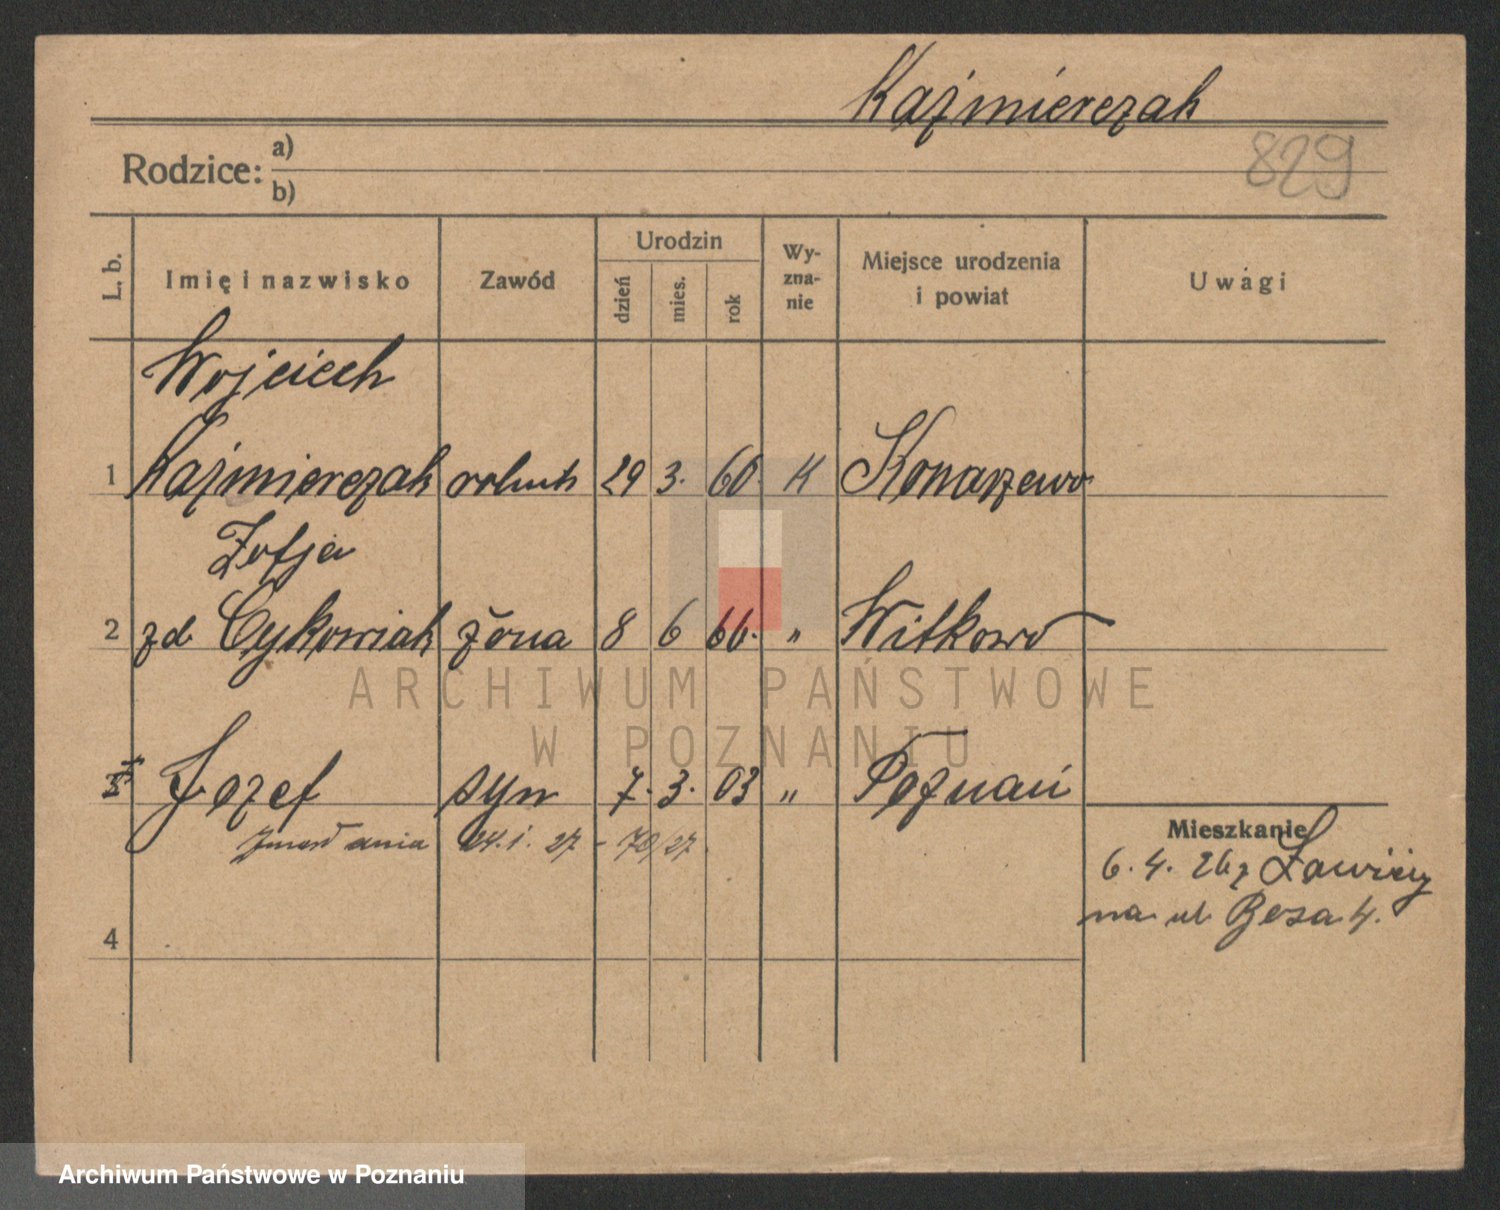 Kaźmierczak
829
Rodzice: a)
b)
L. b.
Imię i nazwisko
Zawód
Urodzin
dzień
mies.
rok
Wy-
zna-
nie
Miejsce urodzenia
i powiat
Uwagi
Wojciech
1 Kaźmierczak rolnik 29 3. 60. K Konarzewo
Zofja
2 zd Cykowiak żona 8 6 66. " Witkowo
ARCHIWUM PAŃSTWOWE
W POZNANIU
3 Jozef syn 7. 3. 03 " Poznań
Zmarł dnia 24.1.27 - 70/27.
Mieszkanie
6. 4. 26 z Ławicy
na ul Beza 4.
4
Archiwum Państwowe w Poznaniu